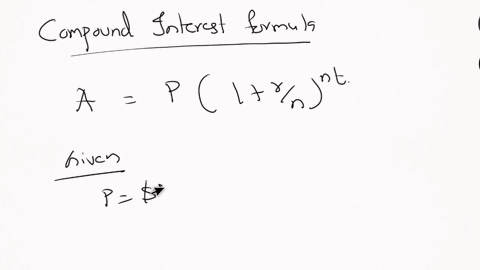 Compound Interest formula
A = P ( 1 + r/n )^nt.
Given
P = $